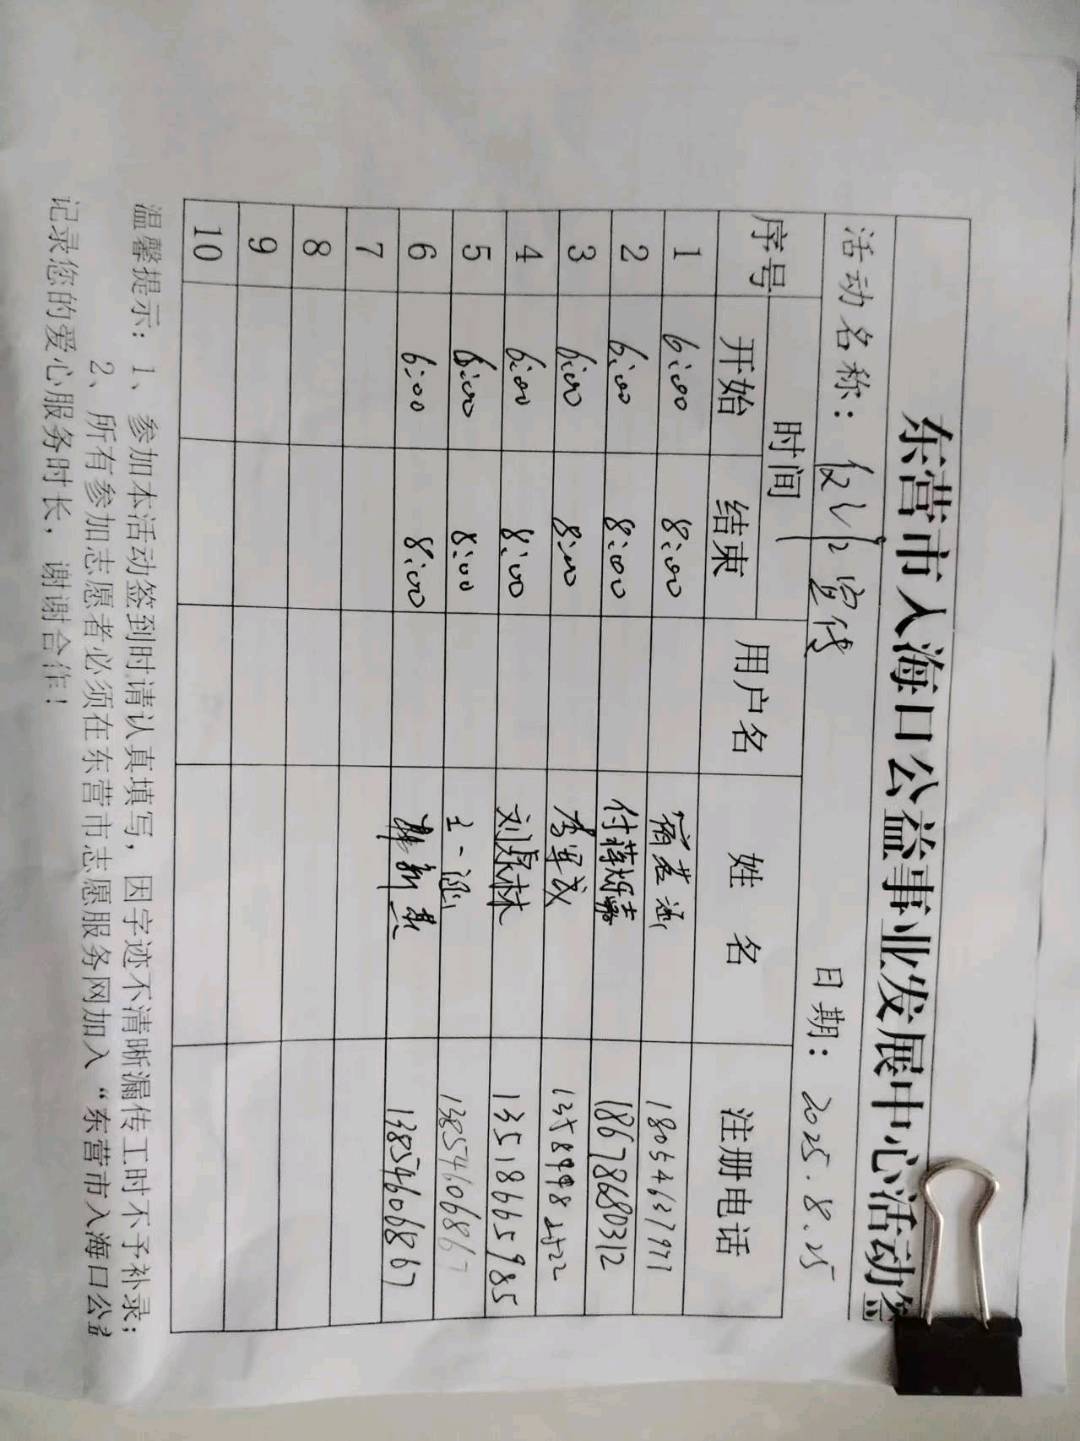 东营市入海口公益事业发展中心活动签
活动名称： 宣传 日期：2025.8.25
序号 时间 用户名 姓名 注册电话
开始 结束
1 6:00 8:00 18054637971
2 6:00 8:00 18678680312
3 6:00 8:00 李军成
4 6:00 8:00 刘泉林 13518665985
5 6:00 8:00 王一涵 13854606867
6 6:00 8:00 13854606867
7
8
9
10
温馨提示：1、参加本活动签到时请认真填写，因字迹不清晰漏传工时不予补录；
2、所有参加志愿者必须在东营市志愿服务网加入“东营市入海口公益
记录您的爱心服务时长，谢谢合作！